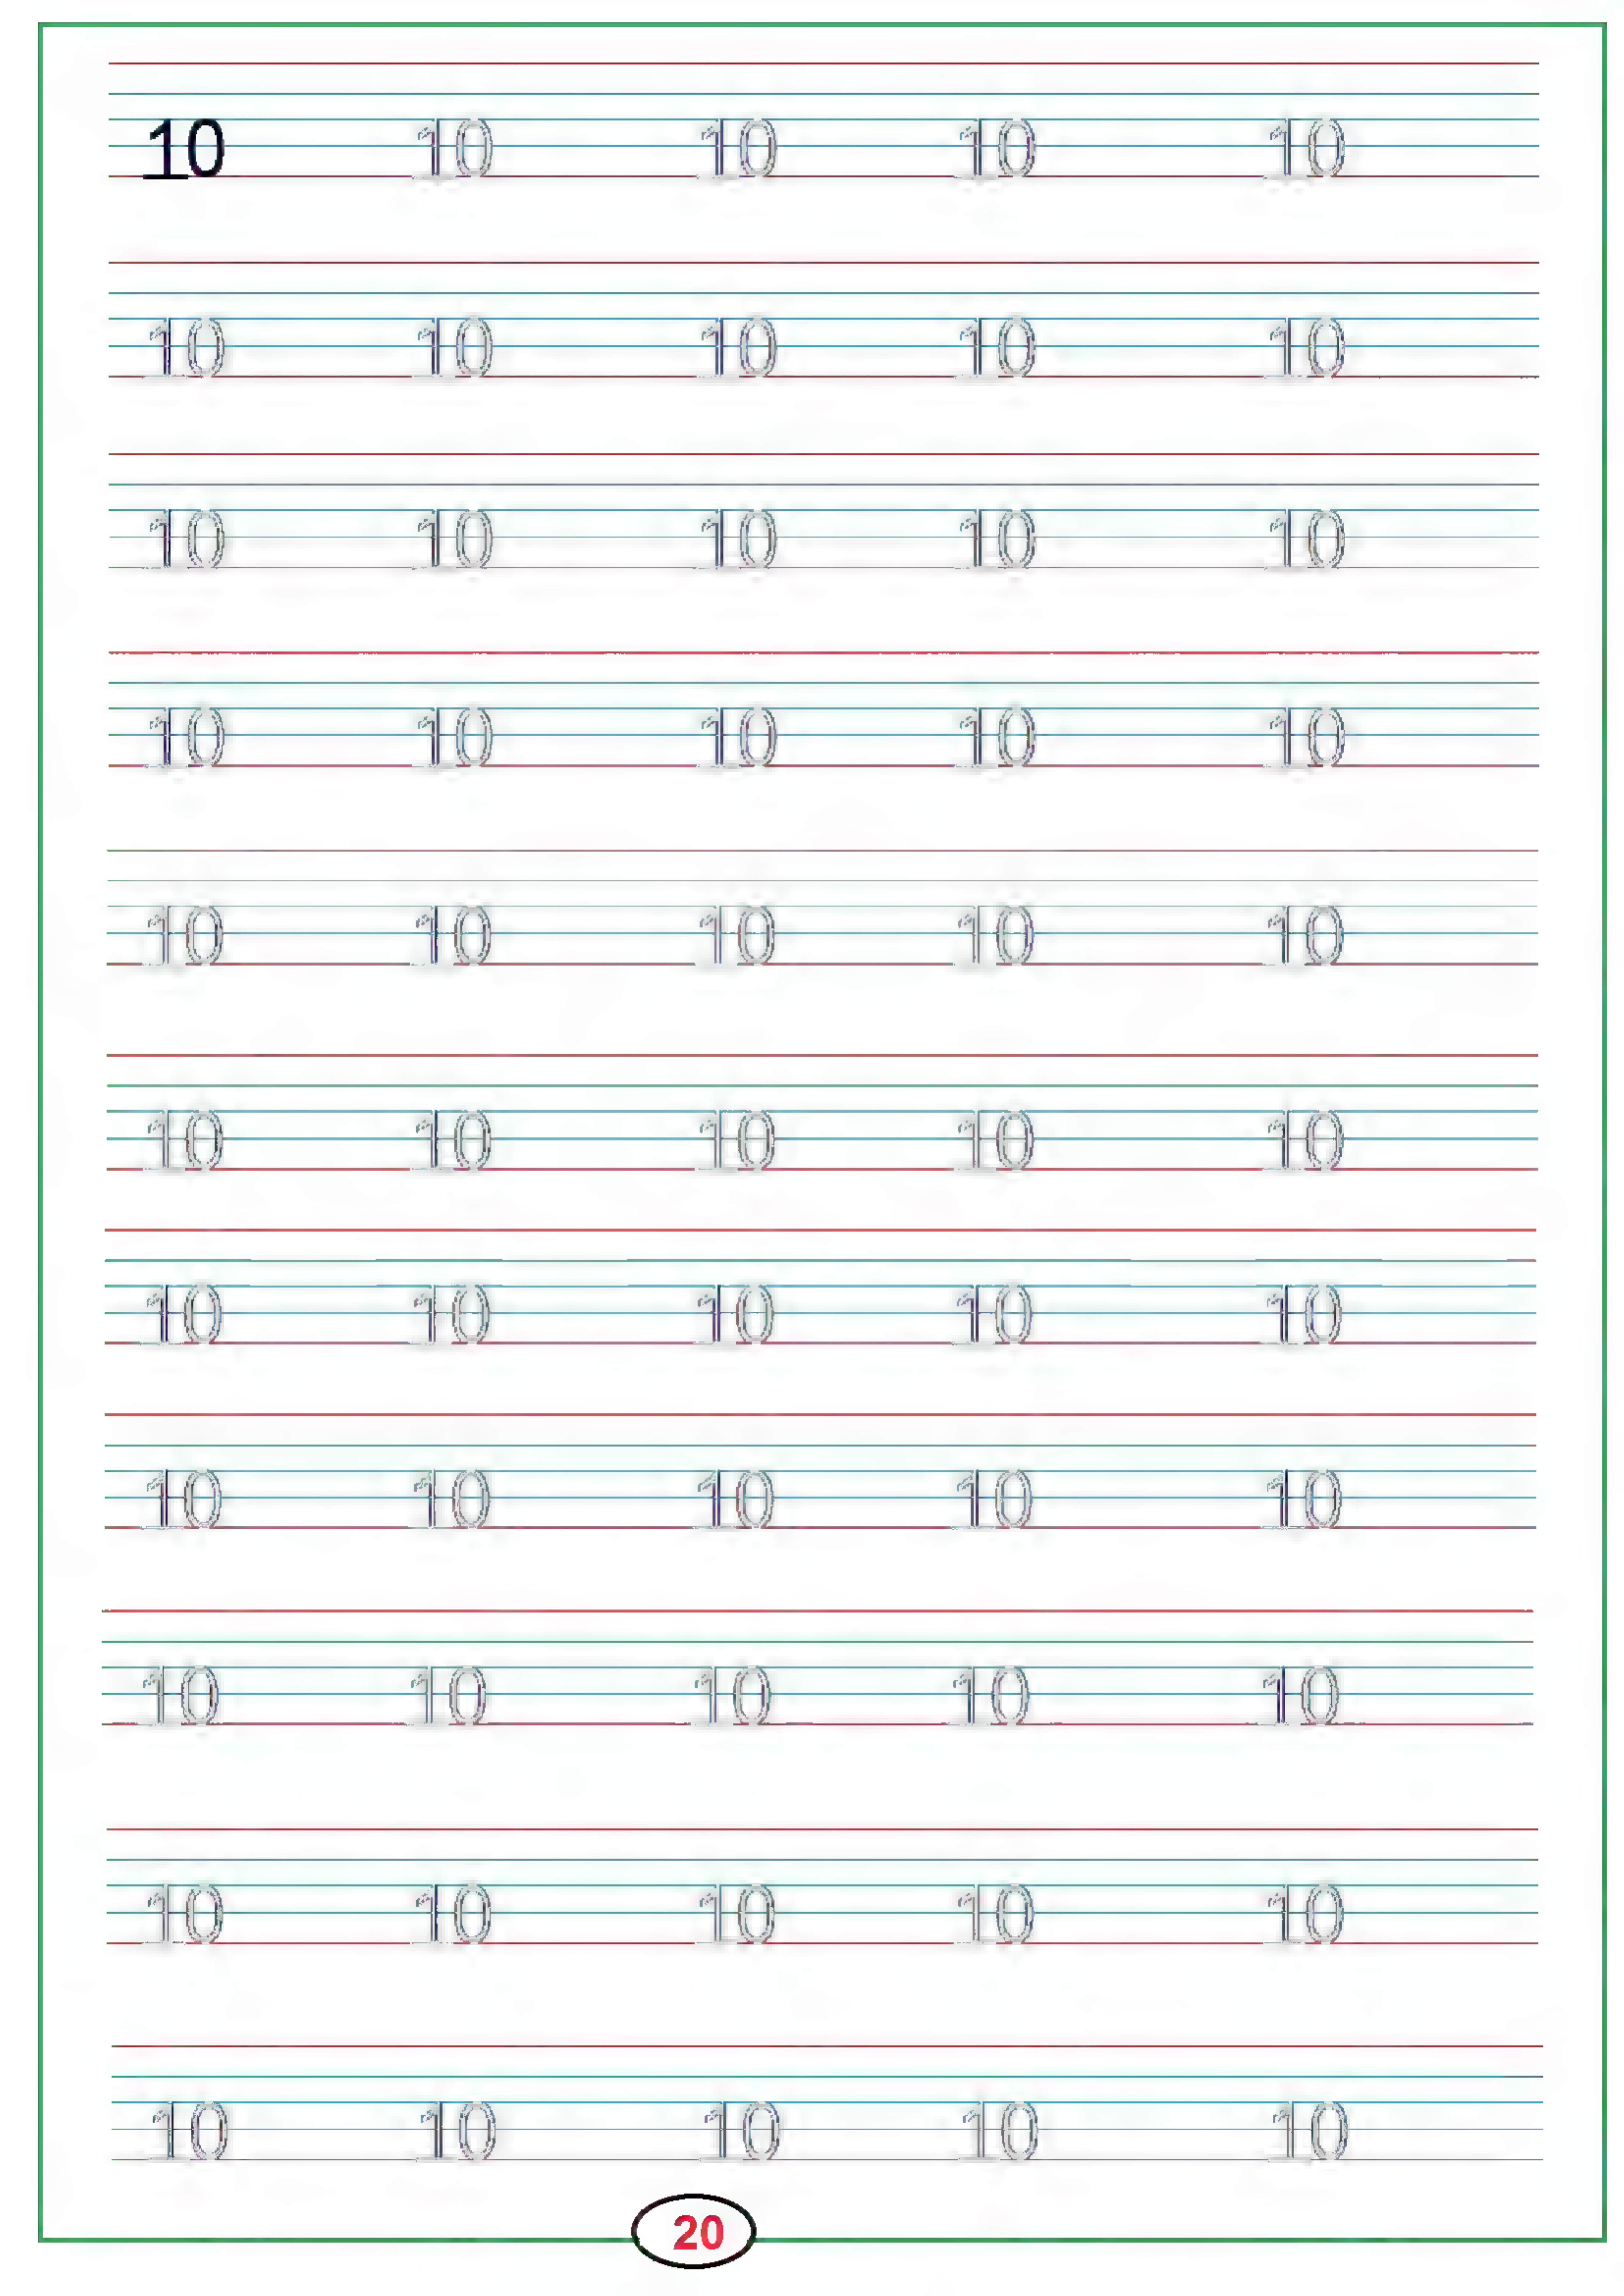 10 10 10 10 10
10 10 10 10 10
10 10 10 10 10
10 10 10 10 10
10 10 10 10 10
10 10 10 10 10
10 10 10 10 10
10 10 10 10 10
10 10 10 10 10
10 10 10 10 10
10 10 10 10 10
20